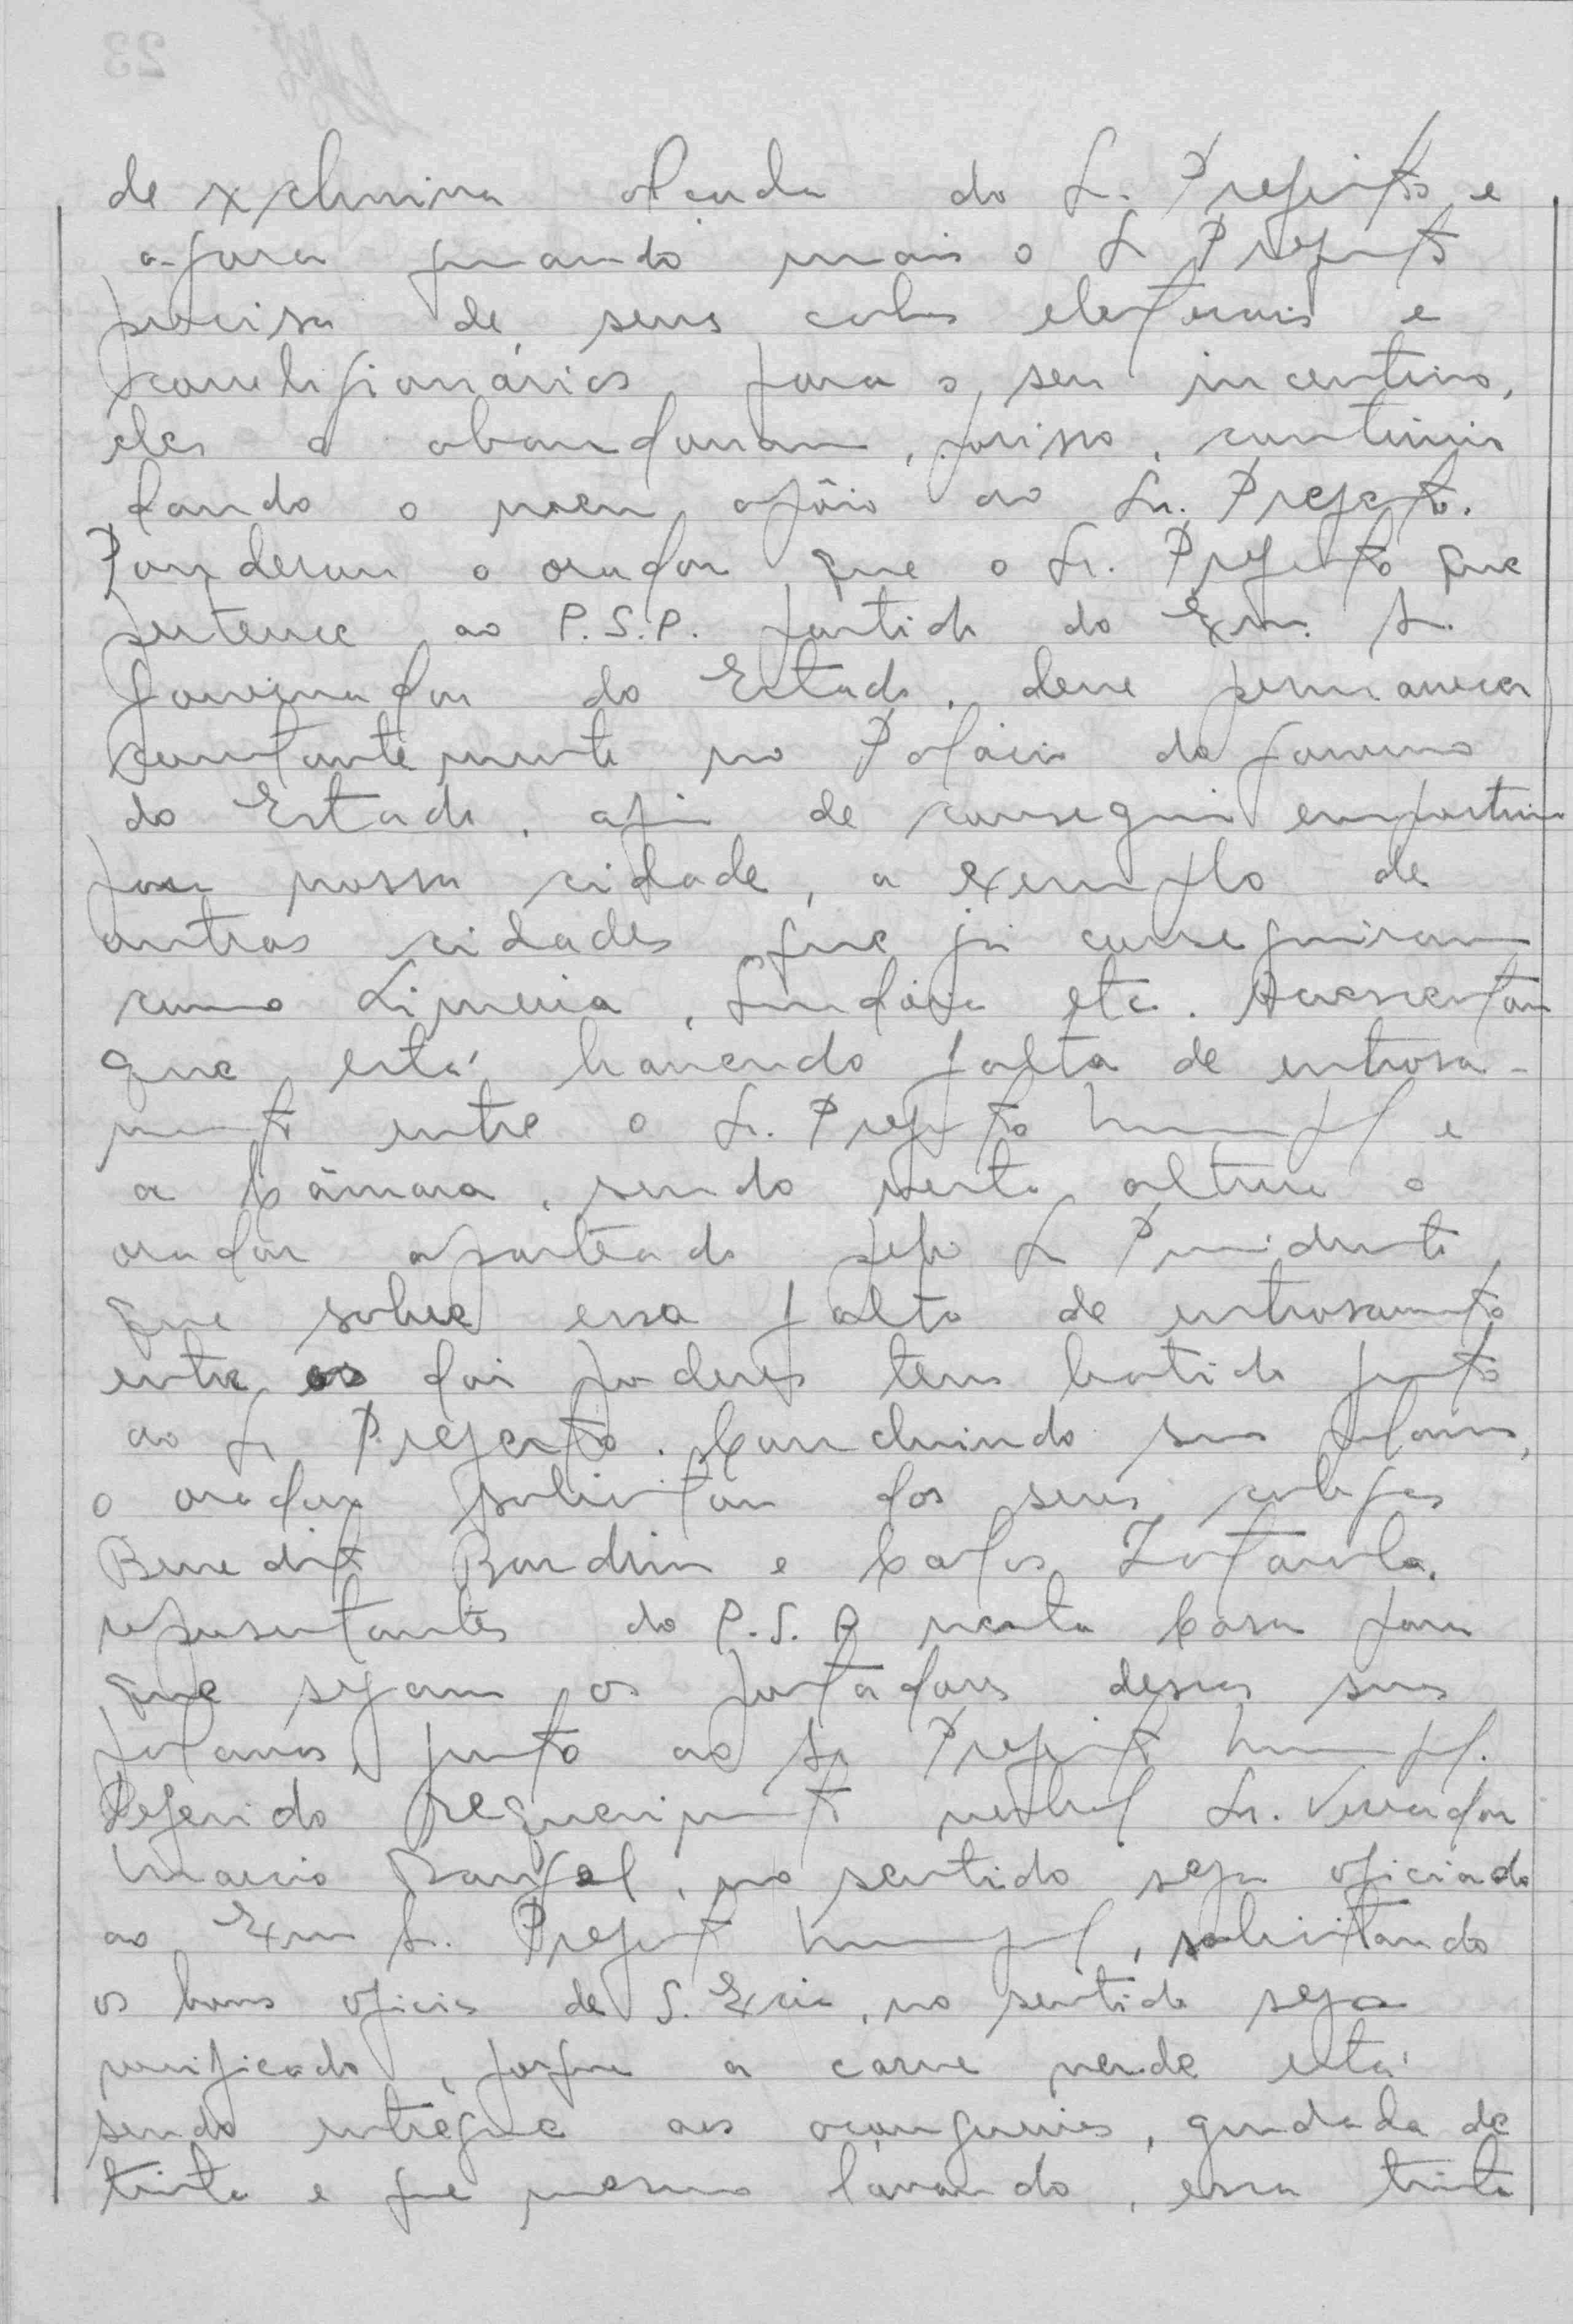 de exclusiva alçada do Sr. Prefeito e
agora quando mais o Sr Prefeito
precisa de seus cabos eleitorais e
correligionários para o seu incentivo,
eles o abandonam, porisso, continuo
dando o meu apôio ao Sr. Prefeito.
Ponderou o orador que o Sr. Prefeito que
pertence ao P.S.P. partido do Exmo. Sr.
Governador do Estado, deve permanecer
constantemente no Palacio do Governo
do Estado, afim de conseguir emprestimo
para nossa cidade, a exemplo de
outras cidades que já conseguiram
como Limeira, etc. Acrescentou
que está havendo falta de entrosa-
mento entre o Sr. Prefeito Municipal e
a Câmara, sendo nesta altura o
orador aparteado pelo Sr Presidente
que sobre essa falta de entrosamento
entre os dois poderes tem batido junto
ao Sr Prefeito. Concluindo sua palavra,
o orador solicitou dos seus colegas
Benedito e Carlos
representantes do P.S.P nesta Casa para
que sejam os portadores dessas suas
palavras, junto ao Sr Prefeito Municipal.
Deferido requerimento verbal Sr. Vereador
Marcio Rangel, no sentido seja oficiado
ao Exmo Sr. Prefeito Municipal, solicitando
os bons oficios de S. Excia, no sentido seja
verificado, porque a carne verde está
sendo entregue aos açougueiros, grudada de
tinta e que mesmo lavando, essa tinta